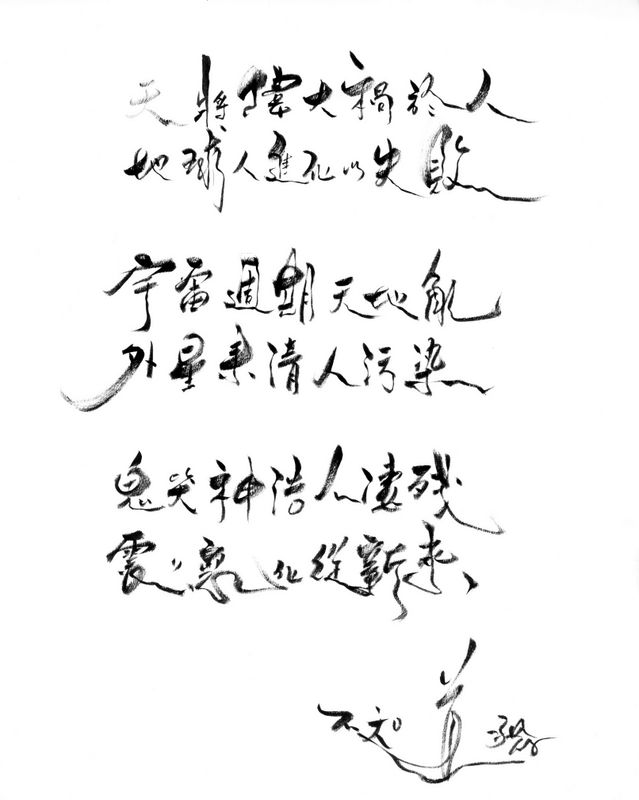 天將偉大禍於人
地球人進化以失敗
宇宙週期天地亂
外星來清人污染
鬼哭神浩人淒殘
震〃亂化從新來
不知道